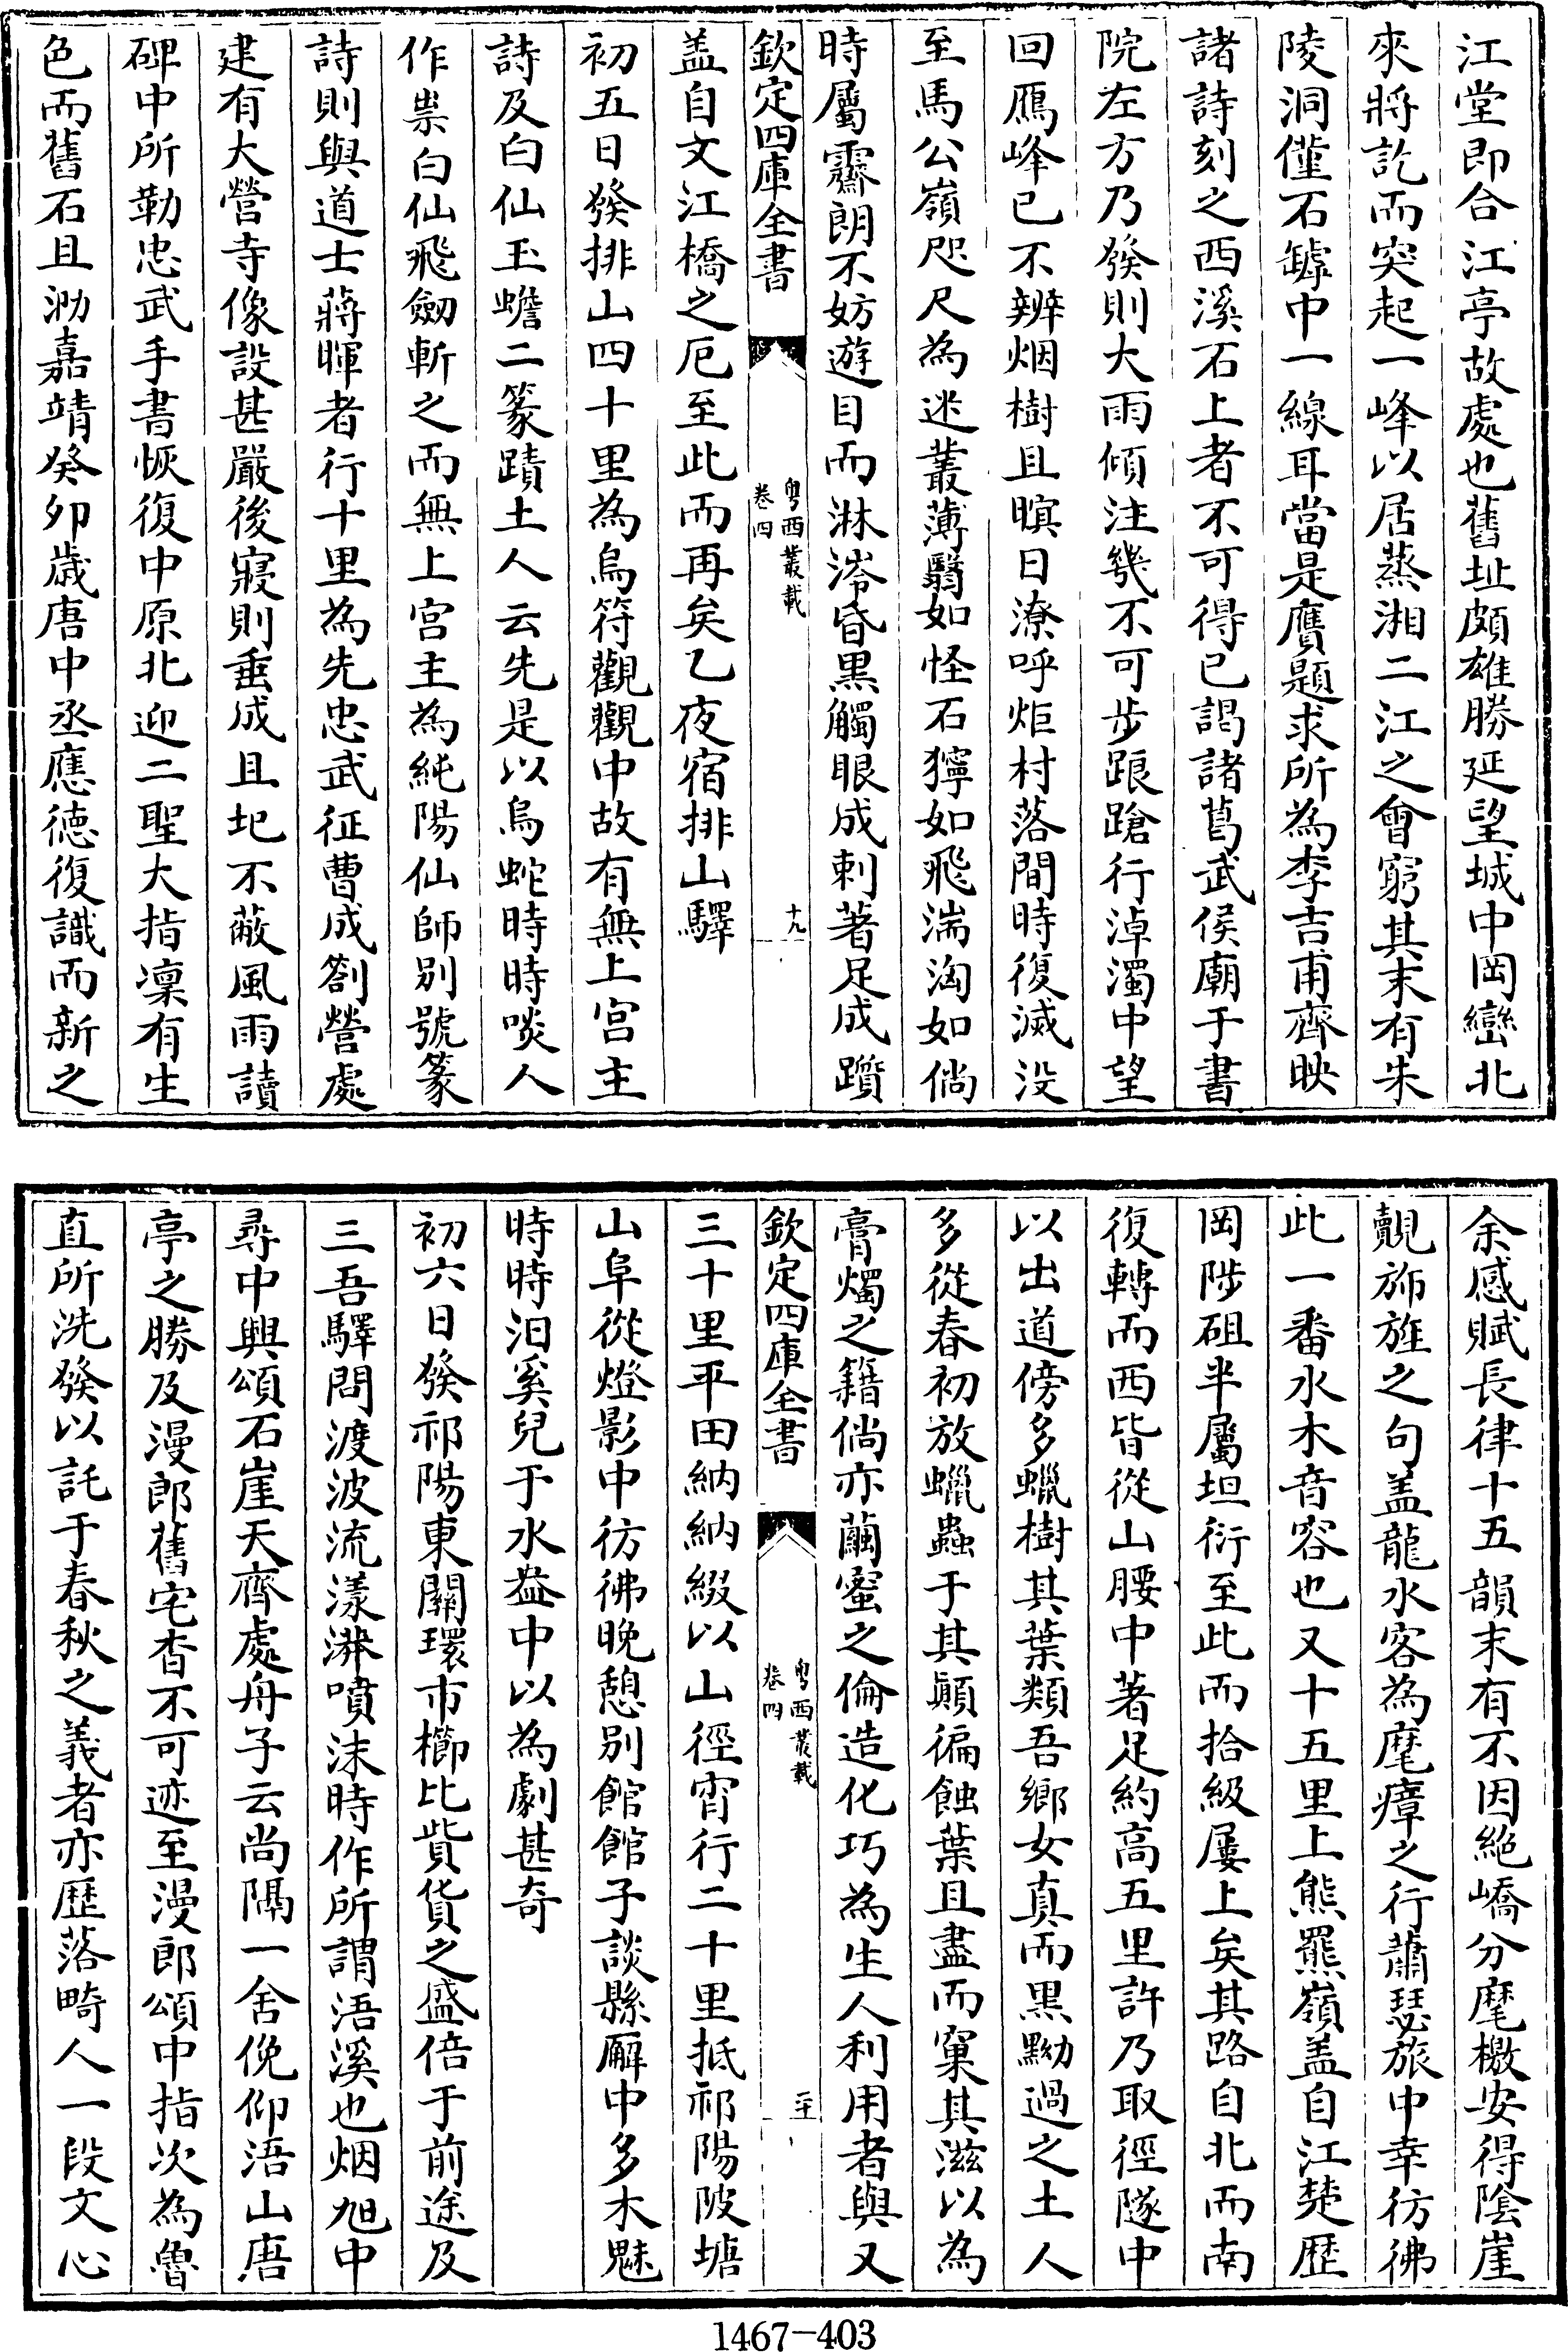 江堂即合江亭故處也舊址頗雄勝延望城中岡巒北
來將訖而突起一峰以居蒸湘二江之會窮其末有朱
陵洞僅石罅中一線耳當是贗題求所為李吉甫齊映
諸詩刻之西溪石上者不可得已謁諸葛武侯廟于書
院左方乃發則大雨傾注幾不可步踉蹌行淖濁中望
回鴈峰已不辨烟樹且暝日潦呼炬村落間時復滅没
至馬公嶺咫尺為迷叢薄翳如怪石獰如飛湍洶如倘
時屬霽朗不妨遊目而淋涔昏黒觸眼成刺著足成躓
欽定四庫全書
粤西叢載
卷四
十九
盖自文江橋之厄至此而再矣乙夜宿排山驛
初五日發排山四十里為烏符觀觀中故有無上宫主
詩及白仙玉蟾二篆蹟土人云先是以烏蛇時時啖人
作祟白仙飛劒斬之而無上宫主為純陽仙師别號篆
詩則與道士蔣暉者行十里為先忠武征曹成劄營處
建有大營寺像設甚嚴後寢則垂成且圮不蔽風雨讀
碑中所勒忠武手書恢復中原北迎二聖大指凛有生
色而舊石且泐嘉靖癸夘歲唐中丞應徳復識而新之
余感賦長律十五韻末有不因絶嶠分麾檄安得陰崖
覿斾旌之句盖龍水客為麾瘴之行蕭瑟旅中幸彷彿
此一番水木音容也又十五里上熊羆嶺盖自江楚歴
岡陟砠半屬坦衍至此而拾級屢上矣其路自北而南
復轉而西皆從山腰中著足約高五里許乃取徑隧中
以出道傍多蠟樹其葉類吾鄉女真而黒黝過之土人
多從春初放蠟蟲于其顚徧蝕葉且盡而窠其滋以為
膏燭之籍倘亦繭蜜之倫造化巧為生人利用者與又
欽定四庫全書
粤西叢載
卷四
二十
三十里平田納納綴以山徑宵行二十里抵祁陽陂塘
山阜從燈影中彷彿晚憩别館館子談縣廨中多木魅
時時汨奚兒于水盎中以為劇甚奇
初六日發祁陽東關環市櫛比貲貨之盛倍于前途及
三吾驛問渡波流漾漭噴沫時作所謂浯溪也烟旭中
尋中興頌石崖天齊處舟子云尚隔一舍俛仰浯山唐
亭之勝及漫郎舊宅杳不可迹至漫郎頌中指次為魯
直所洗發以託于春秋之義者亦歴落畸人一段文心
1467-403